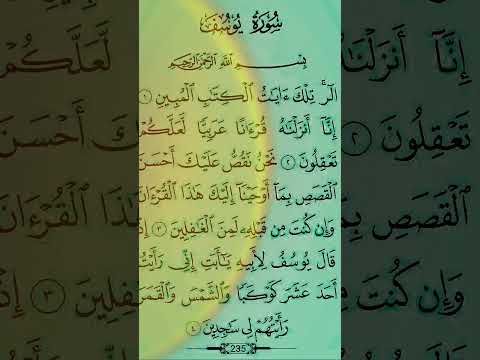 سُورَةُ يُوسُفَ
بِسْمِ ٱللَّهِ ٱلرَّحْمَٰنِ ٱلرَّحِيمِ
الٓر ۚ تِلْكَ ءَايَٰتُ ٱلْكِتَٰبِ ٱلْمُبِينِ ١
إِنَّآ أَنزَلْنَٰهُ قُرْءَٰنًا عَرَبِيًّا لَّعَلَّكُمْ
تَعْقِلُونَ ٢ نَحْنُ نَقُصُّ عَلَيْكَ أَحْسَنَ
ٱلْقَصَصِ بِمَآ أَوْحَيْنَآ إِلَيْكَ هَٰذَا ٱلْقُرْءَانَ
وَإِن كُنتَ مِن قَبْلِهِۦ لَمِنَ ٱلْغَٰفِلِينَ ٣ إِذْ
قَالَ يُوسُفُ لِأَبِيهِ يَٰٓأَبَتِ إِنِّى رَأَيْتُ
أَحَدَ عَشَرَ كَوْكَبًا وَٱلشَّمْسَ وَٱلْقَمَرَ
رَأَيْتُهُمْ لِى سَٰجِدِينَ ٤
235